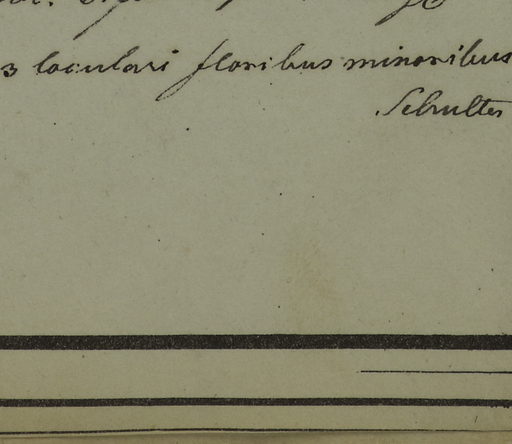 3 loculari floribus minoribus
Schultes